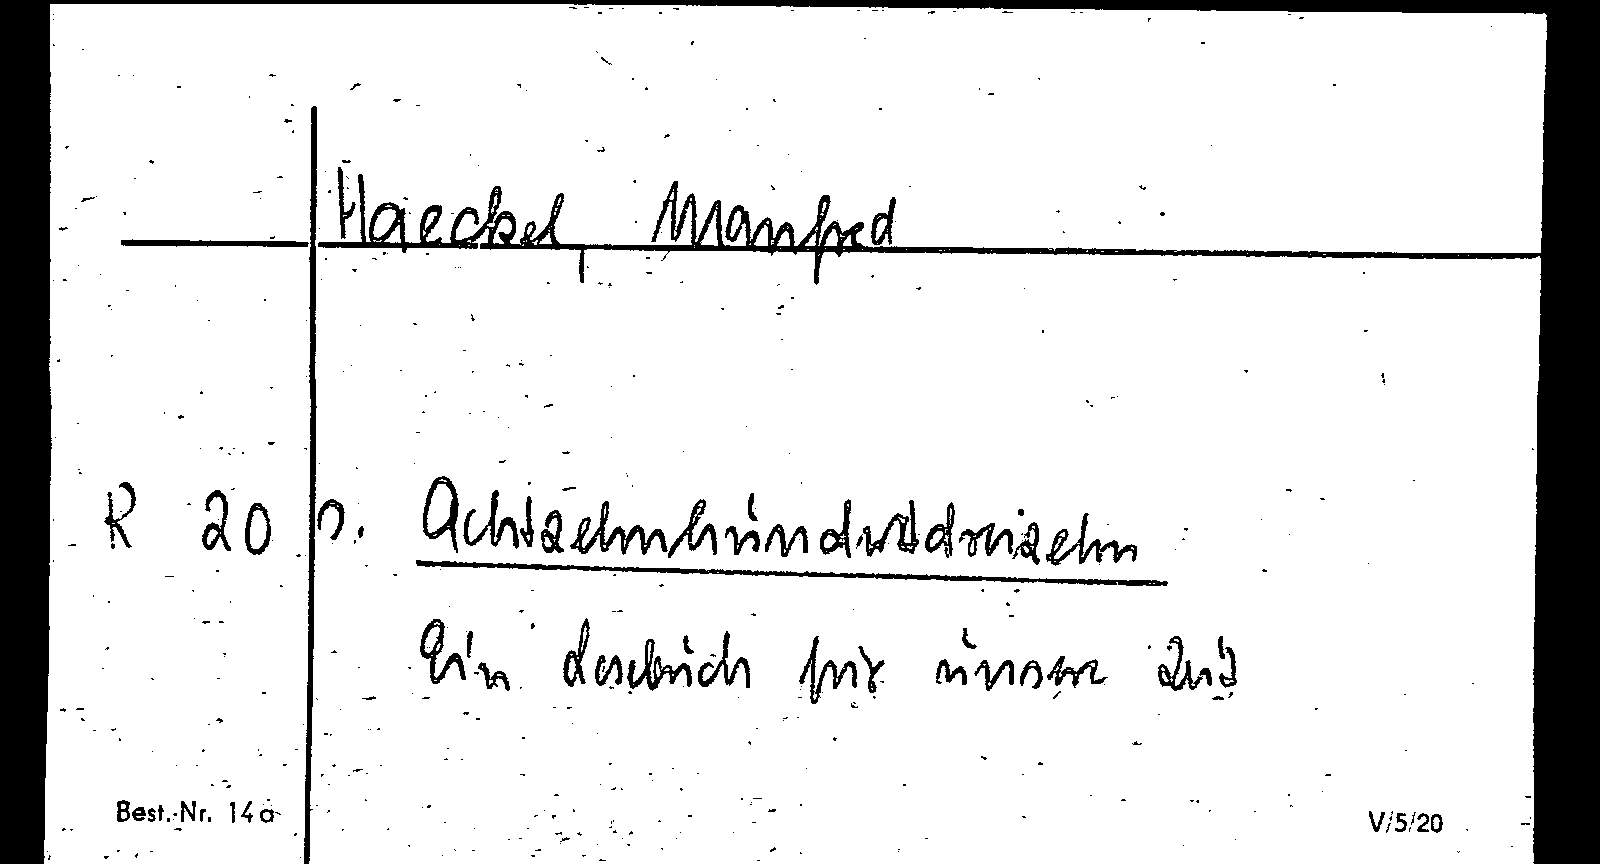 Haeckel, Manfred
R 20 s. Achtzehnhundertdreizehn
Ein Lesebuch für unsere Zeit
Best.-Nr. 14a
V/5/20